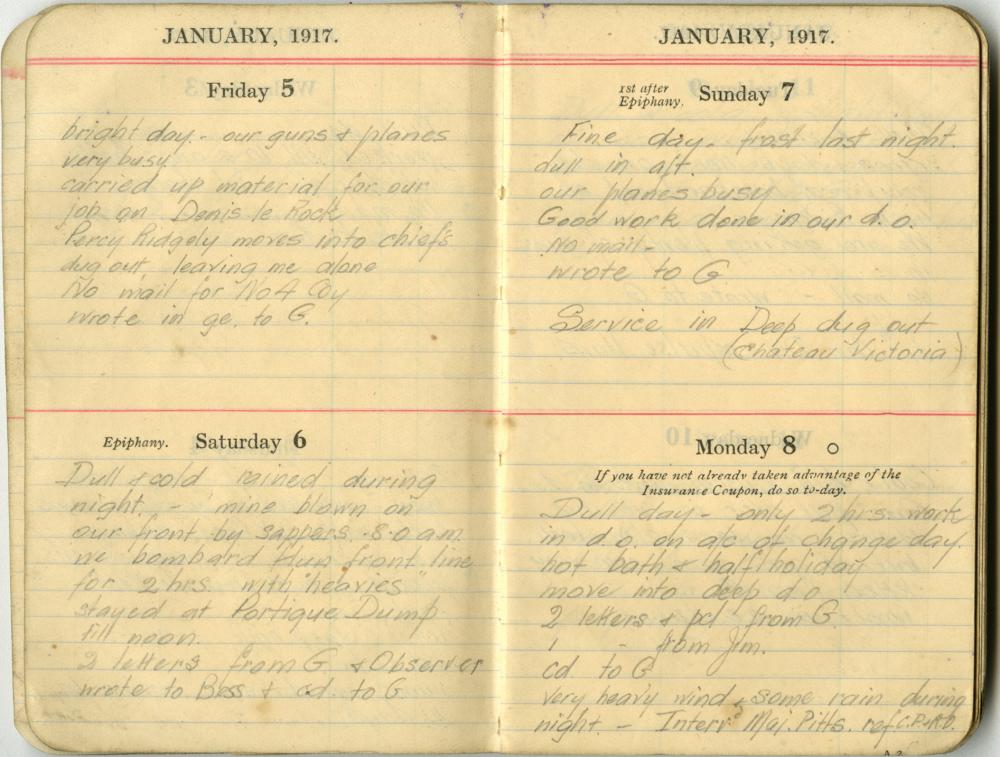 JANUARY, 1917.
Friday 5
bright day - our guns & planes
very busy
carried up material for our
job on Denis le Rock
Percy Ridgely moves into chief's
dug out, leaving me alone
No mail for No 4 Coy
wrote in ge. to G.
Epiphany. Saturday 6
Dull & cold rained during
night. - mine blown on
our front by sappers. 8.0 a.m.
we bombard Hun front line
for 2 hrs. with "heavies"
stayed at Portique Dump
till noon.
2 letters from G & Observer
wrote to Bess & cd. to G
JANUARY, 1917.
1st after
Epiphany. Sunday 7
Fine day - frost last night.
dull in aft.
our planes busy
Good work done in our d.o.
No mail -
wrote to G
Service in Deep dug out
(Chateau Victoria)
Monday 8 ○
If you have not already taken advantage of the
Insurance Coupon, do so to-day.
Dull day - only 2 hrs. work
in d.o. on a/c of change day.
hot bath & half holiday
move into deep d.o
2 letters & pcl from G
1 - from Jim.
cd. to G
very heavy wind & some rain during
night. - Interv. Maj. Pitts. ref C.P.&R.D.